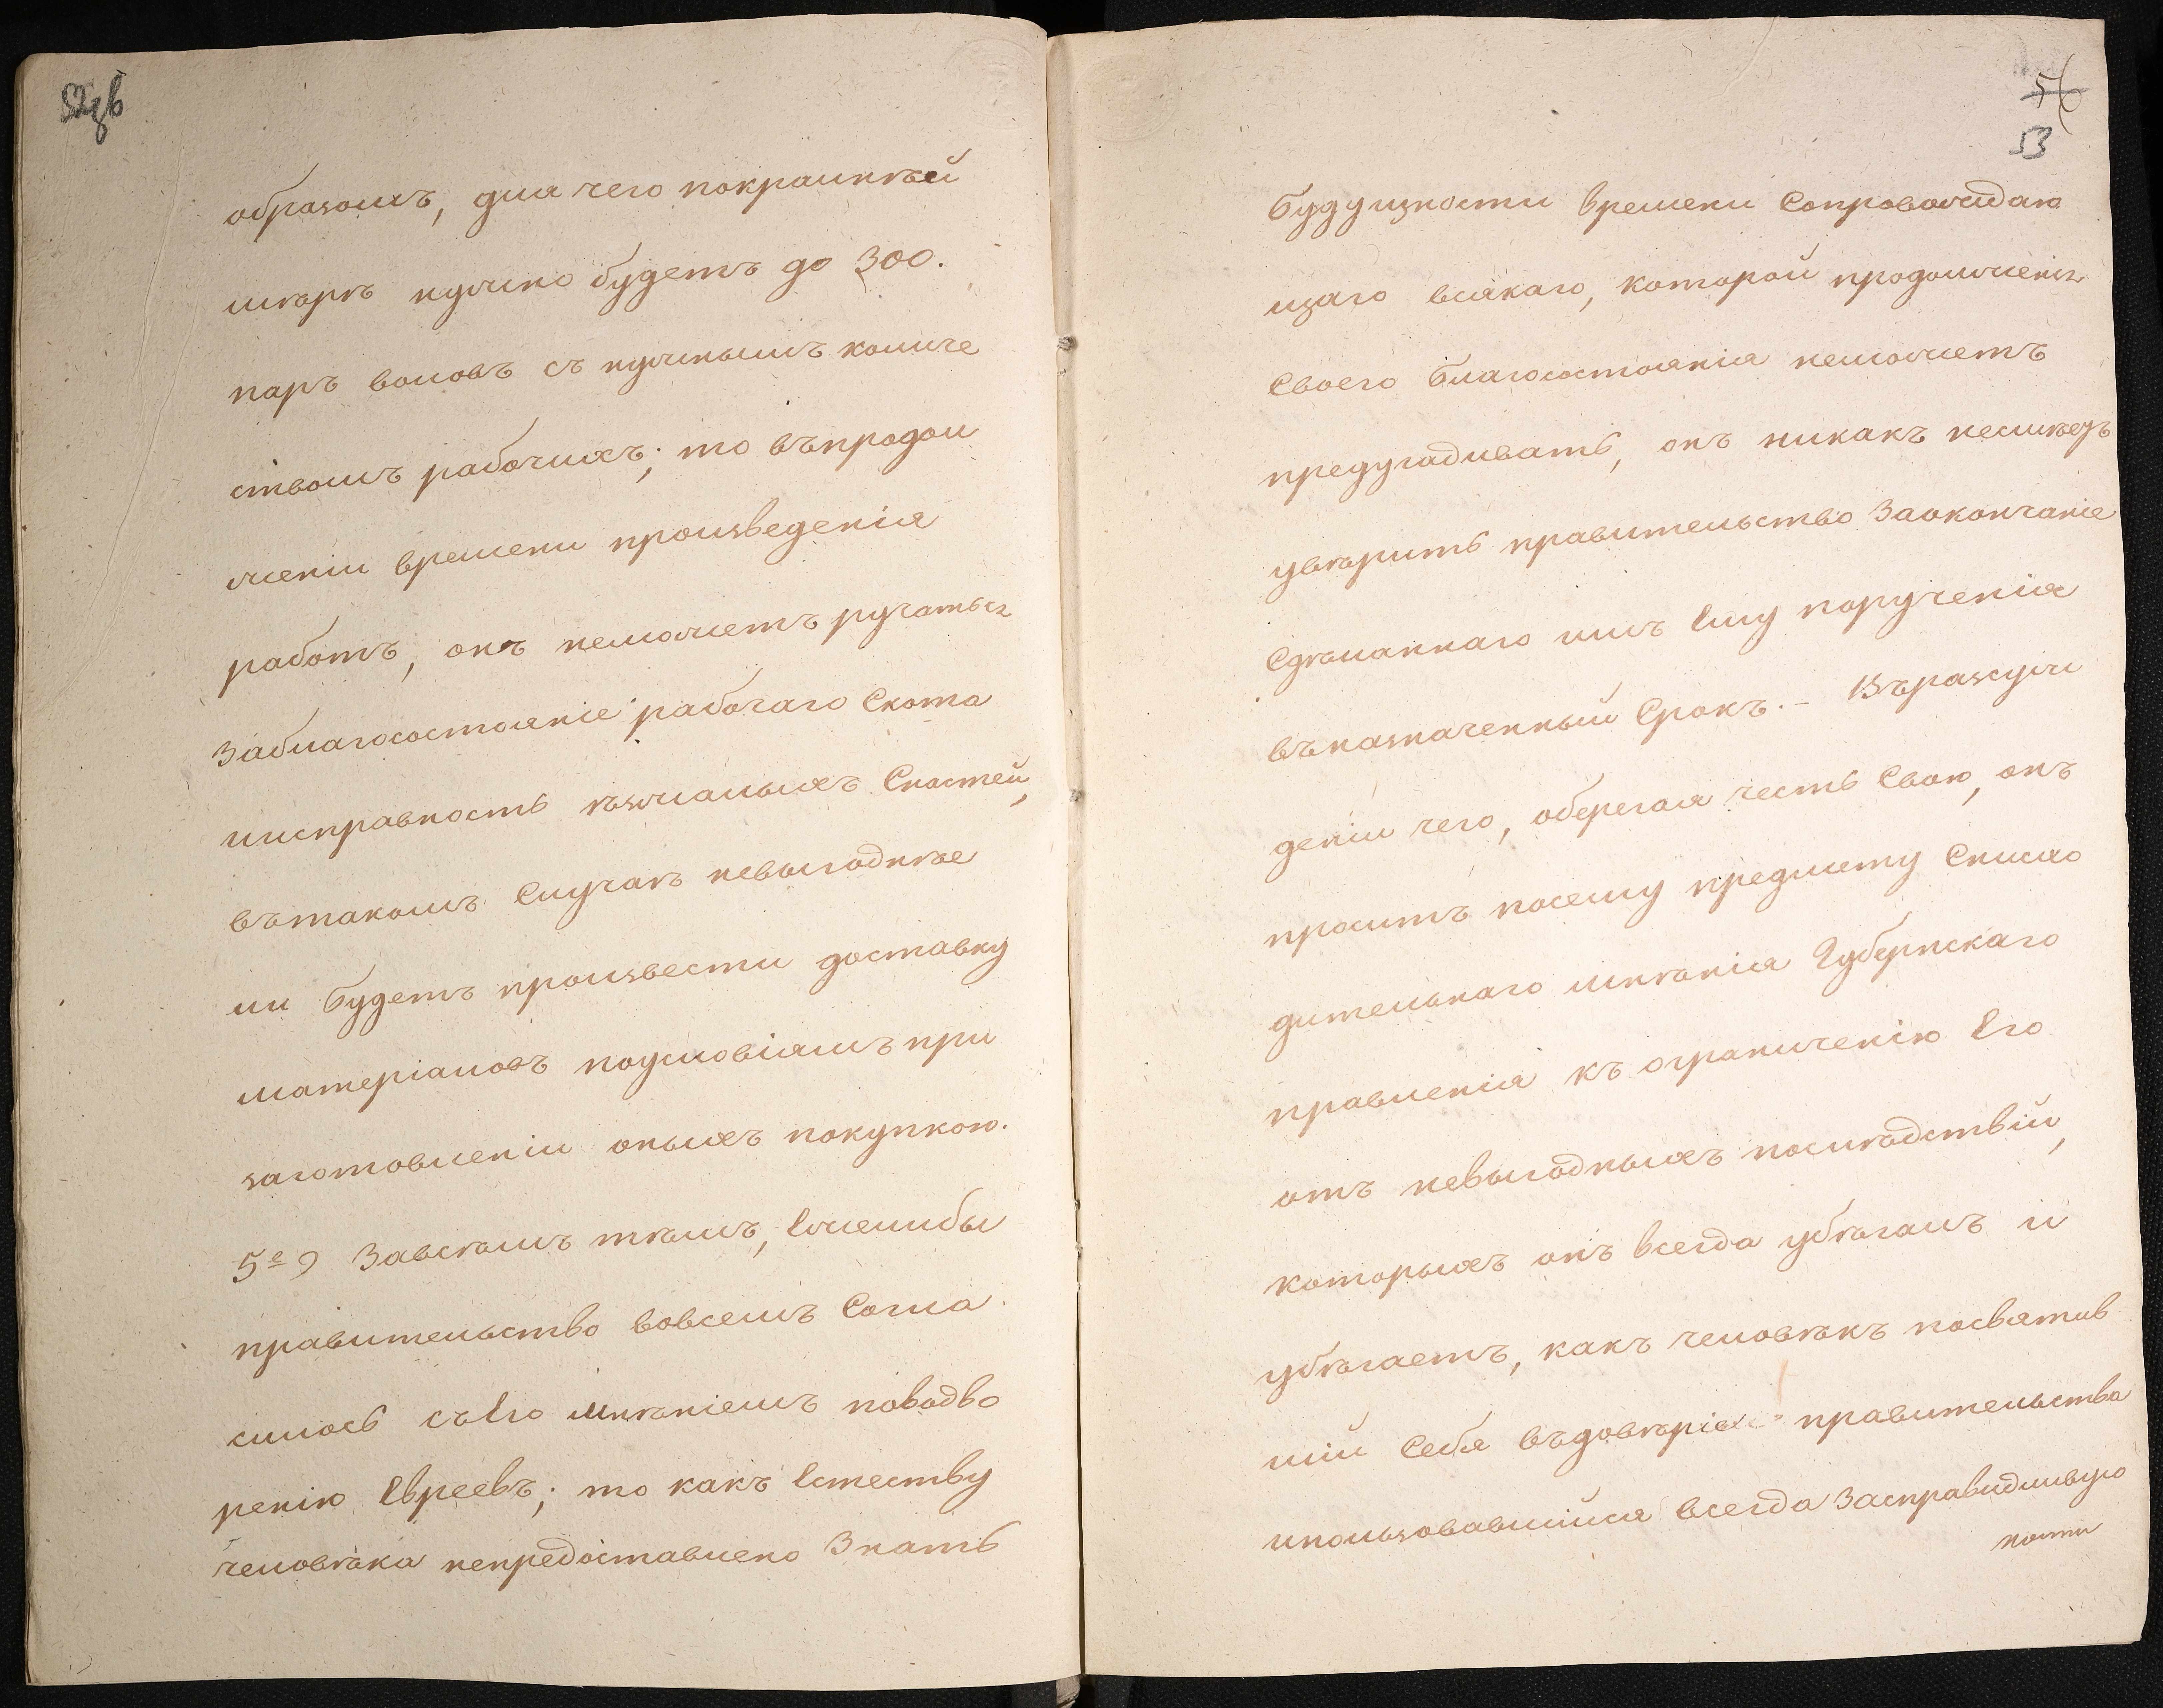 52об
образомъ, для чего покрайнѣй
мѣрѣ нужно будетъ до 300.
паръ воловъ съ нужнымъ количе
ствомъ рабочихъ; то въпродол
женіи времени произведенія
работъ, онъ неможетъ ручатьсѧ
Заблагосостояніе рабочаго Скота
иисправность ѣзжалыхъ Снастей,
вътакомъ Случаѣ невыгоднѣе
ли будетъ произвести доставку
матеріаловъ поусловіямъ при
заготовленіи оныхъ покупкою.
5е) Завсѣмъ тѣмъ, Ежелибы
правительство вовсемъ Согла
силось съЕго Мнѣніемъ поводво
ренію Евреевъ; то какъ Естеству
человѣка непредоставлено Знать
56
53
будущности времени Сопровождаю
щаго всякаго, которой продолженіѧ
Своего благосостоянія неможетъ
предугадивать, онъ никакъ несмѣетъ
увѣрить правительство Заокончаніе
Сдѣланнаго имъ Ему порученія
въназначенный Срокъ. – Въразсуж
деніи чего, оберегая честь Свою, онъ
проситъ посему предмету Снисхо
дительнаго мнѣнія Губернскаго
правленія къ ограниченію Его
отъ невыгодныхъ послѣдствій,
которыхъ онъ всегда убѣгалъ и
убѣгаетъ, какъ человѣкъ посвятив
шій Себя въдовѣріе правительства
ипользовавшійся всегда Засправидливую